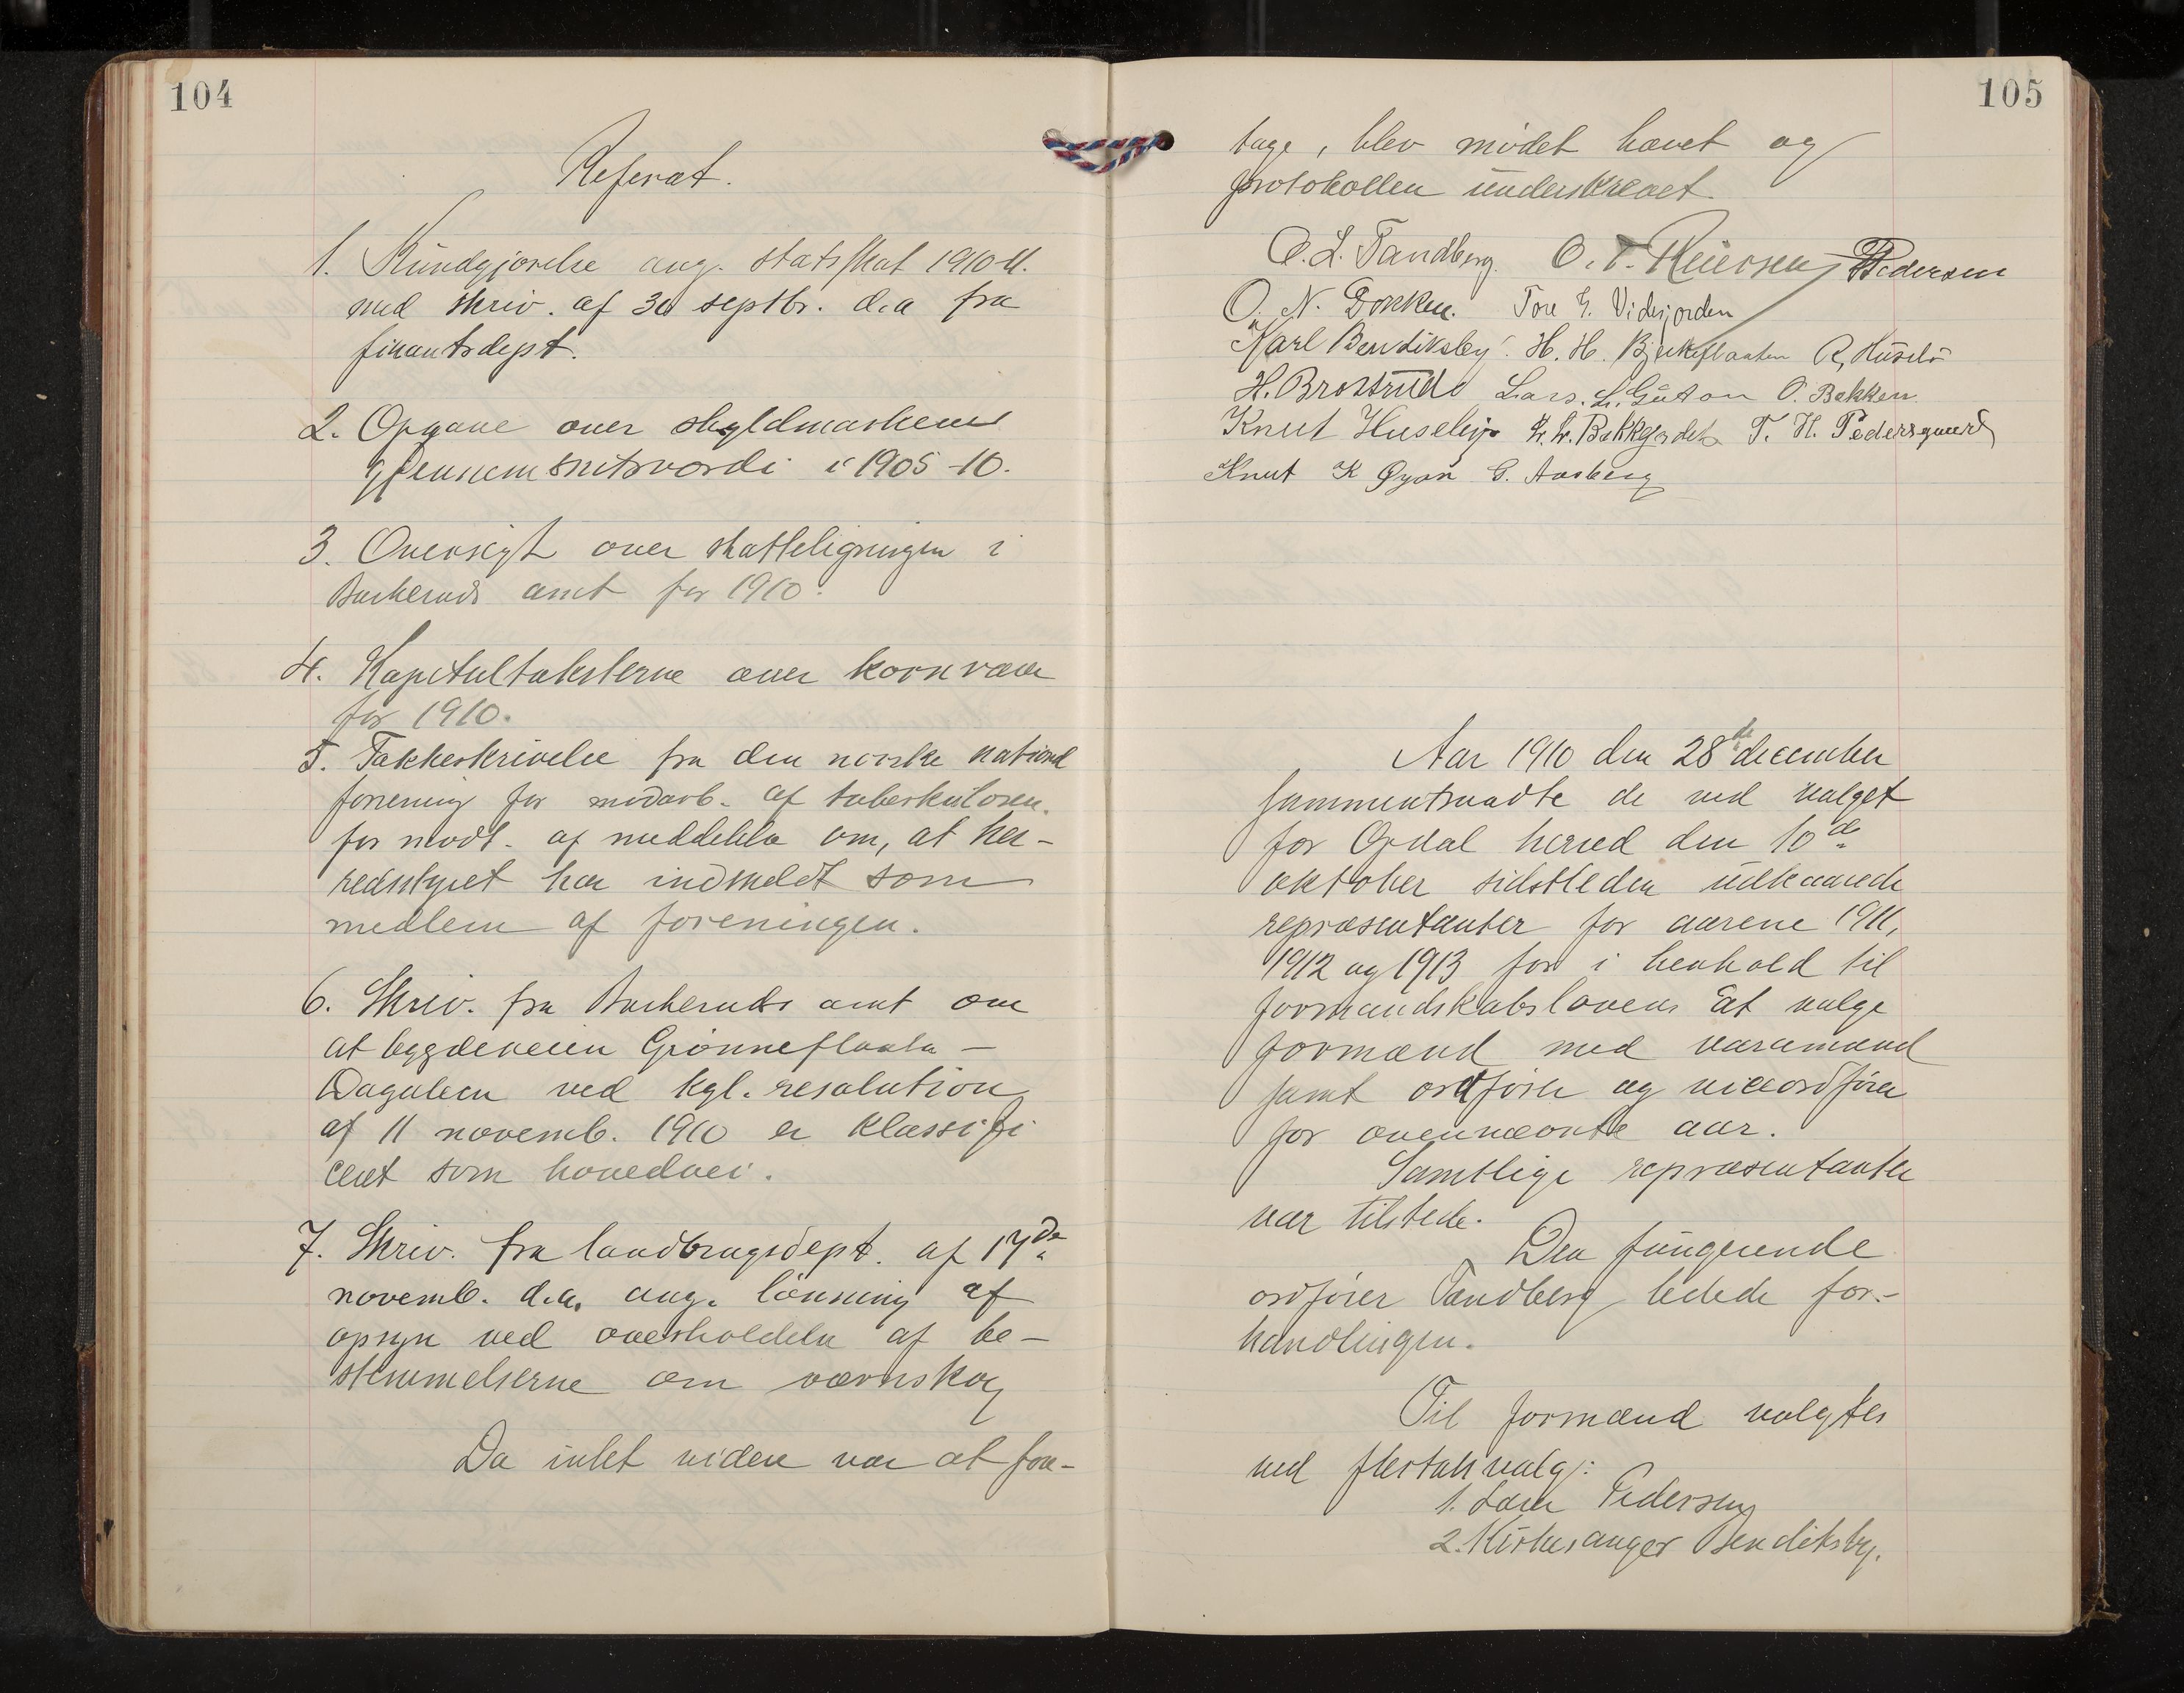 104
Referat.
1. Kundgjørelse ang. statsskat 1910-11.
med skriv. af 30 septbr. d.a fra
finantsdept.
2. Opgave over skyldmarkens
gjennemsnitsværdi i 1905-10.
3. Oversigt over skatteligningen i
Buskeruds amt for 1910.
4. Kapiteltaksterne over kornvarer
for 1910.
5. Takkeskrivelse fra den norske national
forening for modarb. af tuberkulosen.
for modt. af meddelelse om, at her-
redsstyret har indmeldt som
medlem af foreningen.
6. Skriv. fra Buskeruds amt om
at bygdeveien Grønneflaata -
Dagalien ved kgl. resolution
af 11 novemb. 1910 er klassifi
ceret som hovedvei.
7. Skriv. fra landbrugsdept. af 17de
novemb. d.a. ang. lønning af
opsyn ved overholdelse af be-
stemmelserne om værnskog
Da intet videre var at fore-
105
tage, blev mødet hævet og
protokollen underskrevet.
O. L. Tandberg. O. T. Reiersen Pedersen
O. N. Dokken. Tore E. Vidsjorden
Karl Bendiksby. H. H. Bjerkeflaaten
H. Brostrud Lars. L. O. Bakken
Knut Huseby Bakkegardet T. H. Pedersgaard
Knut K Øyan G. Aasberg
Aar 1910 den 28de december
sammentraadte de ved valget
for Opdal herred den 10de
oktober sidstleden udkaarede
repræsentanter for aarene 1911,
1912 og 1913 for i henhold til
formandskabslovens at vælge
formænd med varamænd
samt ordfører og viceordfører
for ovennævnte aar.
Samtlige repræsentanter
var tilstede.
Den fungerende
ordfører Tandberg ledede for-
handlingen.
Til formænd valgtes
ved flertalsvalg:
1. Pedersen
2. Kirkesanger Bendiksby.